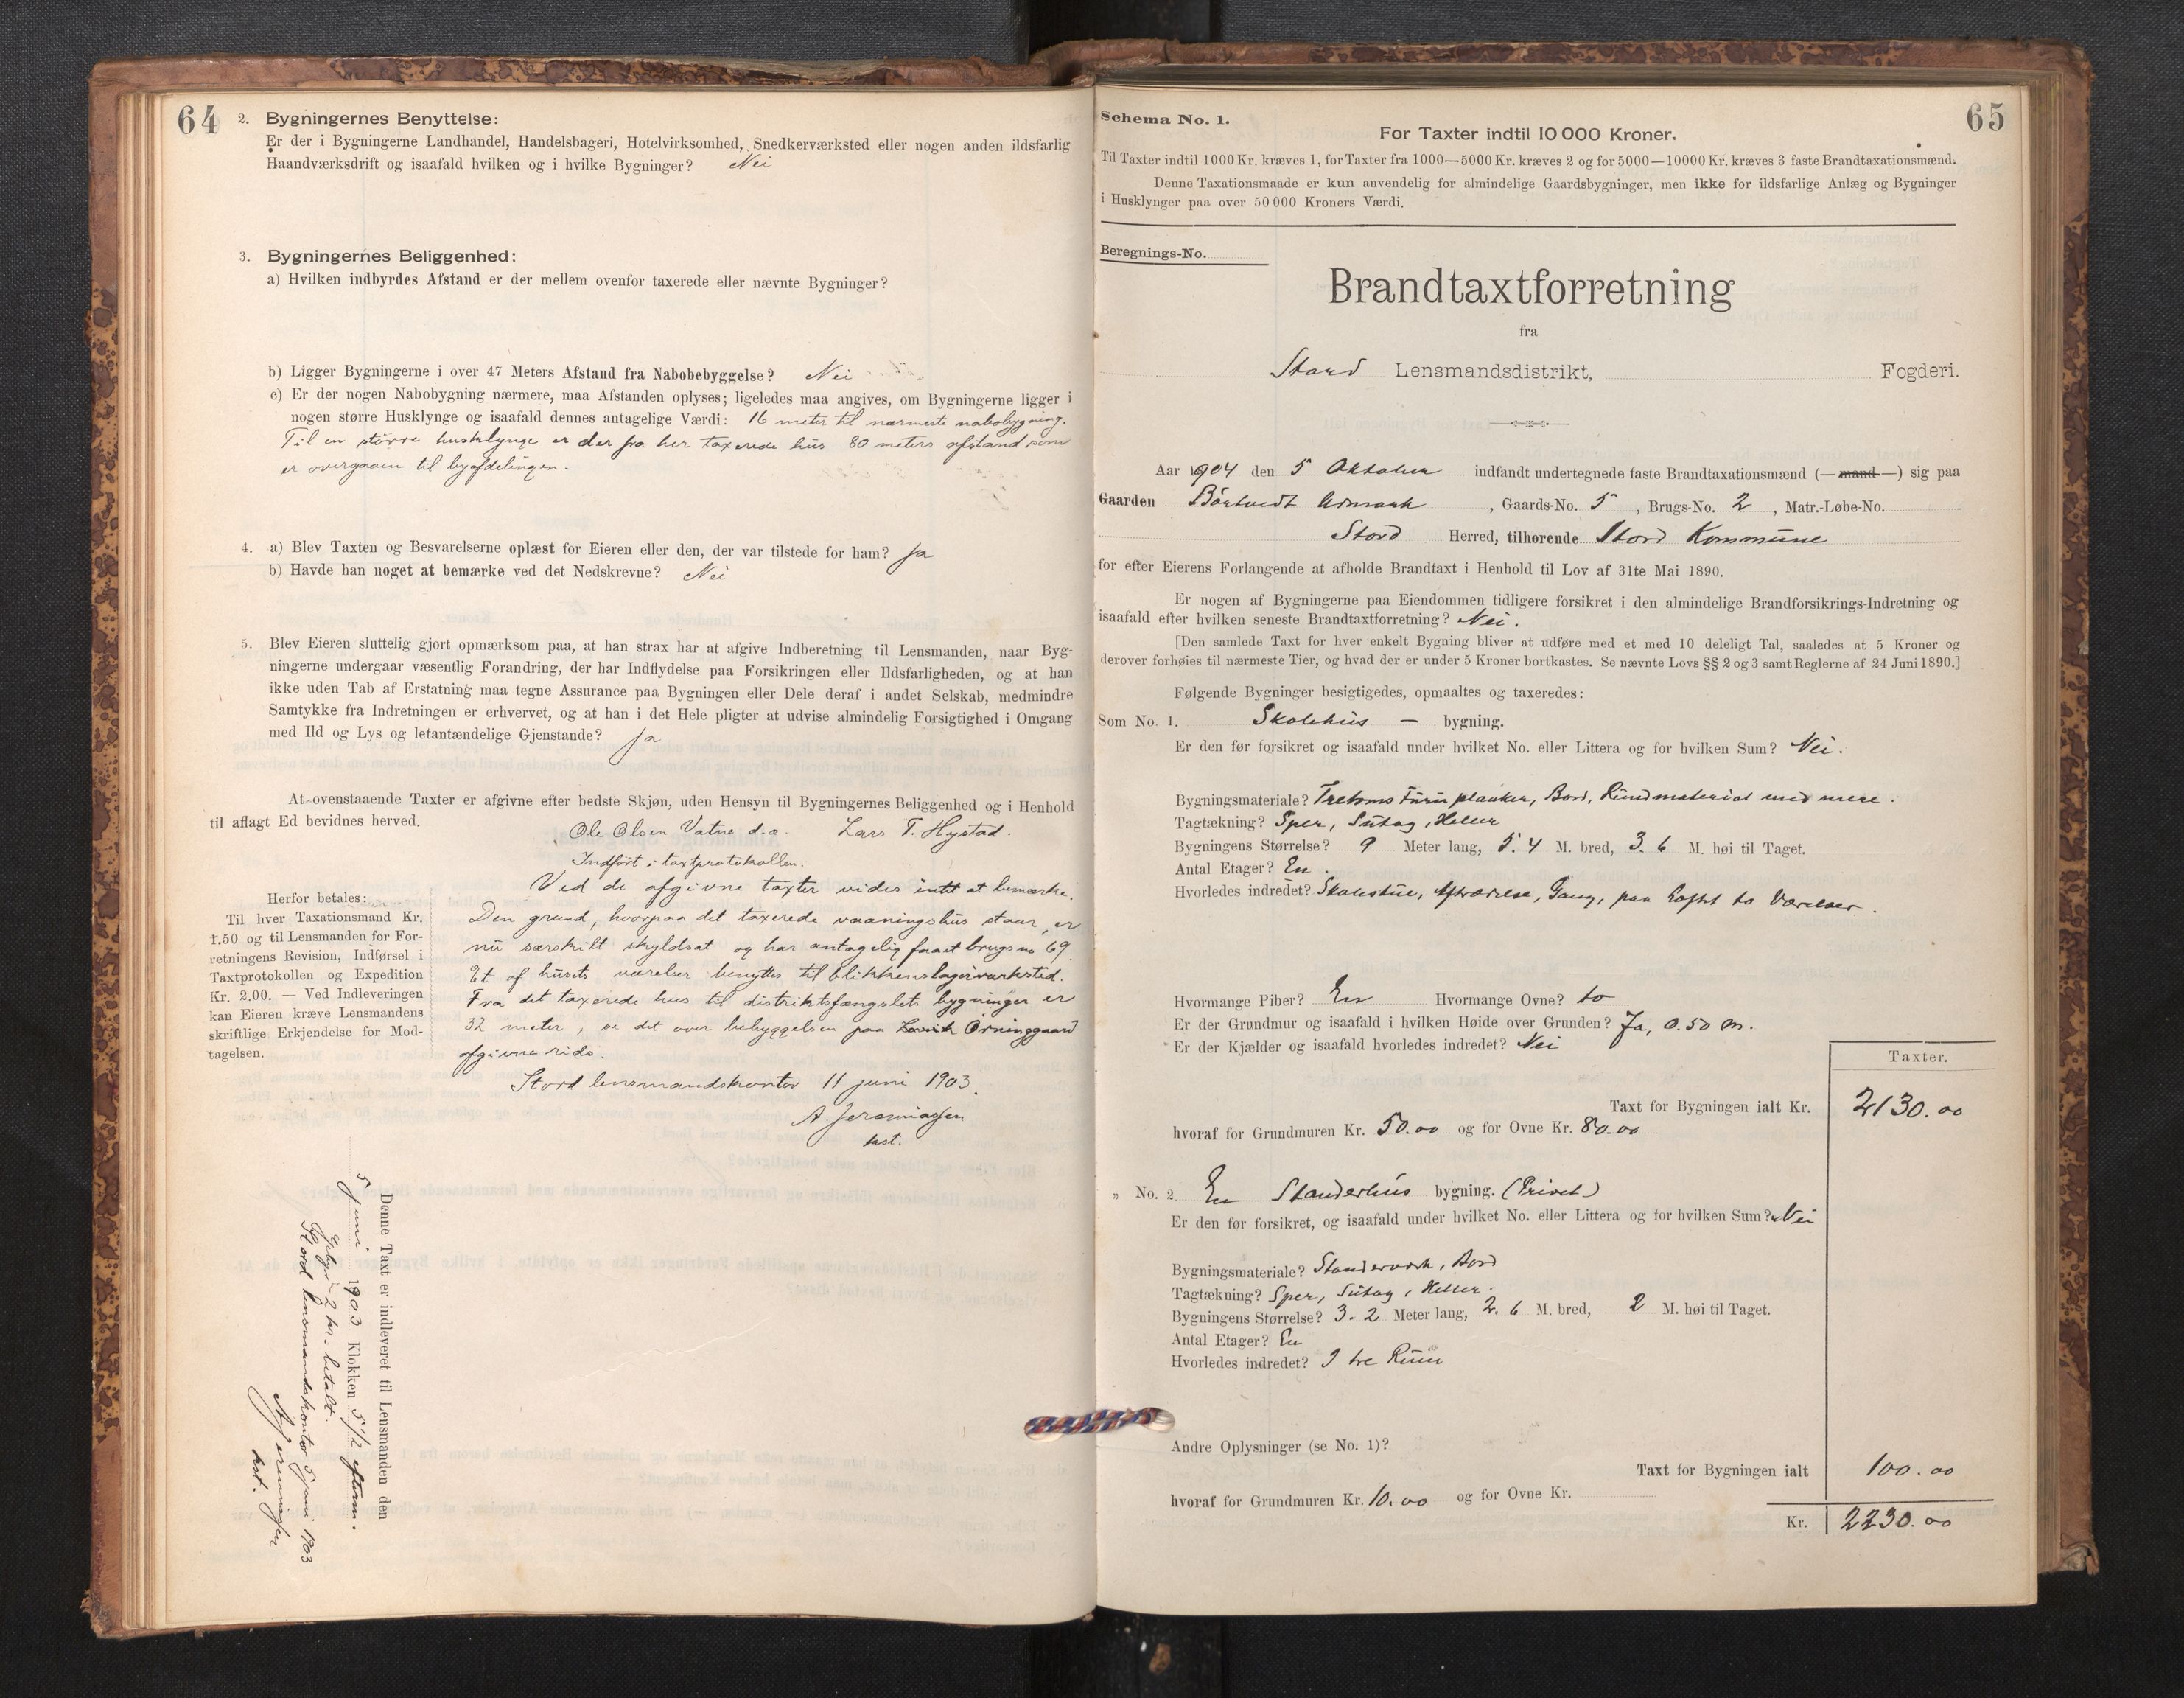 64
2. Bygningernes Benyttelse:
Er der i Bygningerne Landhandel, Handelsbageri, Hotelvirksomhed, Snedkerværksted eller nogen anden ildsfarlig
Haandværksdrift og isaafald hvilken og i hvilke Bygninger? Nei
3. Bygningernes Beliggenhed:
a) Hvilken indbyrdes Afstand er der mellem ovenfor taxerede eller nævnte Bygninger?
b) Ligger Bygningerne i over 47 Meters Afstand fra Nabobebyggelse? Nei
c) Er der nogen Nabobygning nærmere, maa Afstanden oplyses; ligeledes maa angives, om Bygningerne ligger i
nogen større Husklynge og isaafald dennes antagelige Værdi: 16 meter til nærmeste nabobygning.
Til en större husklynge er der fra her taxerede hus 80 meters afstand som
er overgaaen til byafdelingen.
4. a) Blev Taxten og Besvarelserne oplæst for Eieren eller den, der var tilstede for ham? Ja
b) Havde han noget at bemærke ved det Nedskrevne? Nei
5. Blev Eieren sluttelig gjort opmærksom paa, at han strax har at afgive Indberetning til Lensmanden, naar Byg-
ningerne undergaar væsentlig Forandring, der har Indflydelse paa Forsikringen eller Ildsfarligheden, og at han
ikke uden Tab af Erstatning maa tegne Assurance paa Bygningen eller Dele deraf i andet Selskab, medmindre
Samtykke fra Indretningen er erhvervet, og at han i det Hele pligter at udvise almindelig Forsigtighed i Omgang
med Ild og Lys og letantændelige Gjenstande? Ja
At ovenstaaende Taxter er afgivne efter bedste Skjøn, uden Hensyn til Bygningernes Beliggenhed og i Henhold
til aflagt Ed bevidnes herved.
Ole Olsen Vatne d.æ. Lars T. Hystad.
Indført i taxtprotokollen.
Ved de afgivne taxter vides intet at bemærke.
Den grund, hvorpaa det taxerede vaaningshus staar, er
nu særskilt skyldsat og har antagelig faaet brugsno 69.
Et af husets værelser benyttes til blikkenslagerværksted.
Fra det taxerede hus til distriktsfængslets bygninger er
32 meter, se det over bebyggelsen paa Leervik Örninggaard
afgivne rids.
Stord lensmandskontor 11 juni 1903.
A. Jeremiassen
kst.
Herfor betales:
Til hver Taxationsmand Kr.
1.50 og til Lensmanden for For-
retningens Revision, Indførsel i
Taxtprotokollen og Expedition
Kr. 2.00. — Ved Indleveringen
kan Eieren kræve Lensmandens
skriftlige Erkjendelse for Mod-
tagelsen.
Denne Taxt er indleveret til Lensmanden den
5 juni 1903 Klokken 5 1/2 efterm.
Gebyr 2 kr. betalt.
Stord lensmandskontor 5 juni 1903
A. Jeremiassen
kst.
65
Schema No. 1.
For Taxter indtil 10 000 Kroner.
Til Taxter indtil 1000 Kr. kræves 1, for Taxter fra 1000—5000 Kr. kræves 2 og for 5000—10000 Kr. kræves 3 faste Brandtaxationsmænd.
Denne Taxationsmaade er kun anvendelig for almindelige Gaardsbygninger, men ikke for ildsfarlige Anlæg og Bygninger
i Husklynger paa over 50 000 Kroners Værdi.
Beregnings-No.
Brandtaxtforretning
fra
Stord Lensmandsdistrikt, Fogderi.
Aar 1904 den 5 Oktober indfandt undertegnede faste Brandtaxationsmænd (— mand —) sig paa
Gaarden Börtvedt Udmark, Gaards-No. 5, Brugs-No. 2, Matr.-Løbe-No.
Stord Herred, tilhørende Stord Kommune
for efter Eierens Forlangende at afholde Brandtaxt i Henhold til Lov af 31te Mai 1890.
Er nogen af Bygningerne paa Eiendommen tidligere forsikret i den almindelige Brandforsikrings-Indretning og
isaafald efter hvilken seneste Brandtaxtforretning? Nei.
[Den samlede Taxt for hver enkelt Bygning bliver at udføre med et med 10 deleligt Tal, saaledes at 5 Kroner og
derover forhøies til nærmeste Tier, og hvad der er under 5 Kroner bortkastes. Se nævnte Lovs §§ 2 og 3 samt Reglerne af 24 Juni 1890.]
Følgende Bygninger besigtigedes, opmaaltes og taxeredes:
Som No. 1. Skolehus — bygning.
Er den før forsikret og isaafald under hvilket No. eller Littera og for hvilken Sum? Nei.
Bygningsmateriale? Tretoms Furu planker, Bord, Rundmaterial med mere.
Tagtækning? Sper, Sutag, Heller
Bygningens Størrelse? 9 Meter lang, 5.4 M. bred, 3.6 M. høi til Taget.
Antal Etager? En.
Hvorledes indredet? Skolestue, Aftrædelse, Gang, paa Loftet to Værelser.
Hvormange Piber? En Hvormange Ovne? to
Er der Grundmur og isaafald i hvilken Høide over Grunden? Ja, 0.50 m.
Er der Kjælder og isaafald hvorledes indredet? Nei
Taxter.
Taxt for Bygningen ialt Kr. 2130.00
hvoraf for Grundmuren Kr. 50.00 og for Ovne Kr. 80.00
„ No. 2 En Standerhus bygning. (Privet)
Er den før forsikret, og isaafald under hvilket No. eller Littera og for hvilken Sum? Nei
Bygningsmateriale? Standerverk, Bord
Tagtækning? Sper, Sutag, Heller.
Bygningens Størrelse? 3.2 Meter lang, 2.6 M. bred, 2 M. høi til Taget.
Antal Etager? En
Hvorledes indredet? I tre Rum
Andre Oplysninger (se No. 1)?
Taxt for Bygningen ialt 100.00
hvoraf for Grundmuren Kr. 10.00 og for Ovne Kr.
Kr. 2230.00